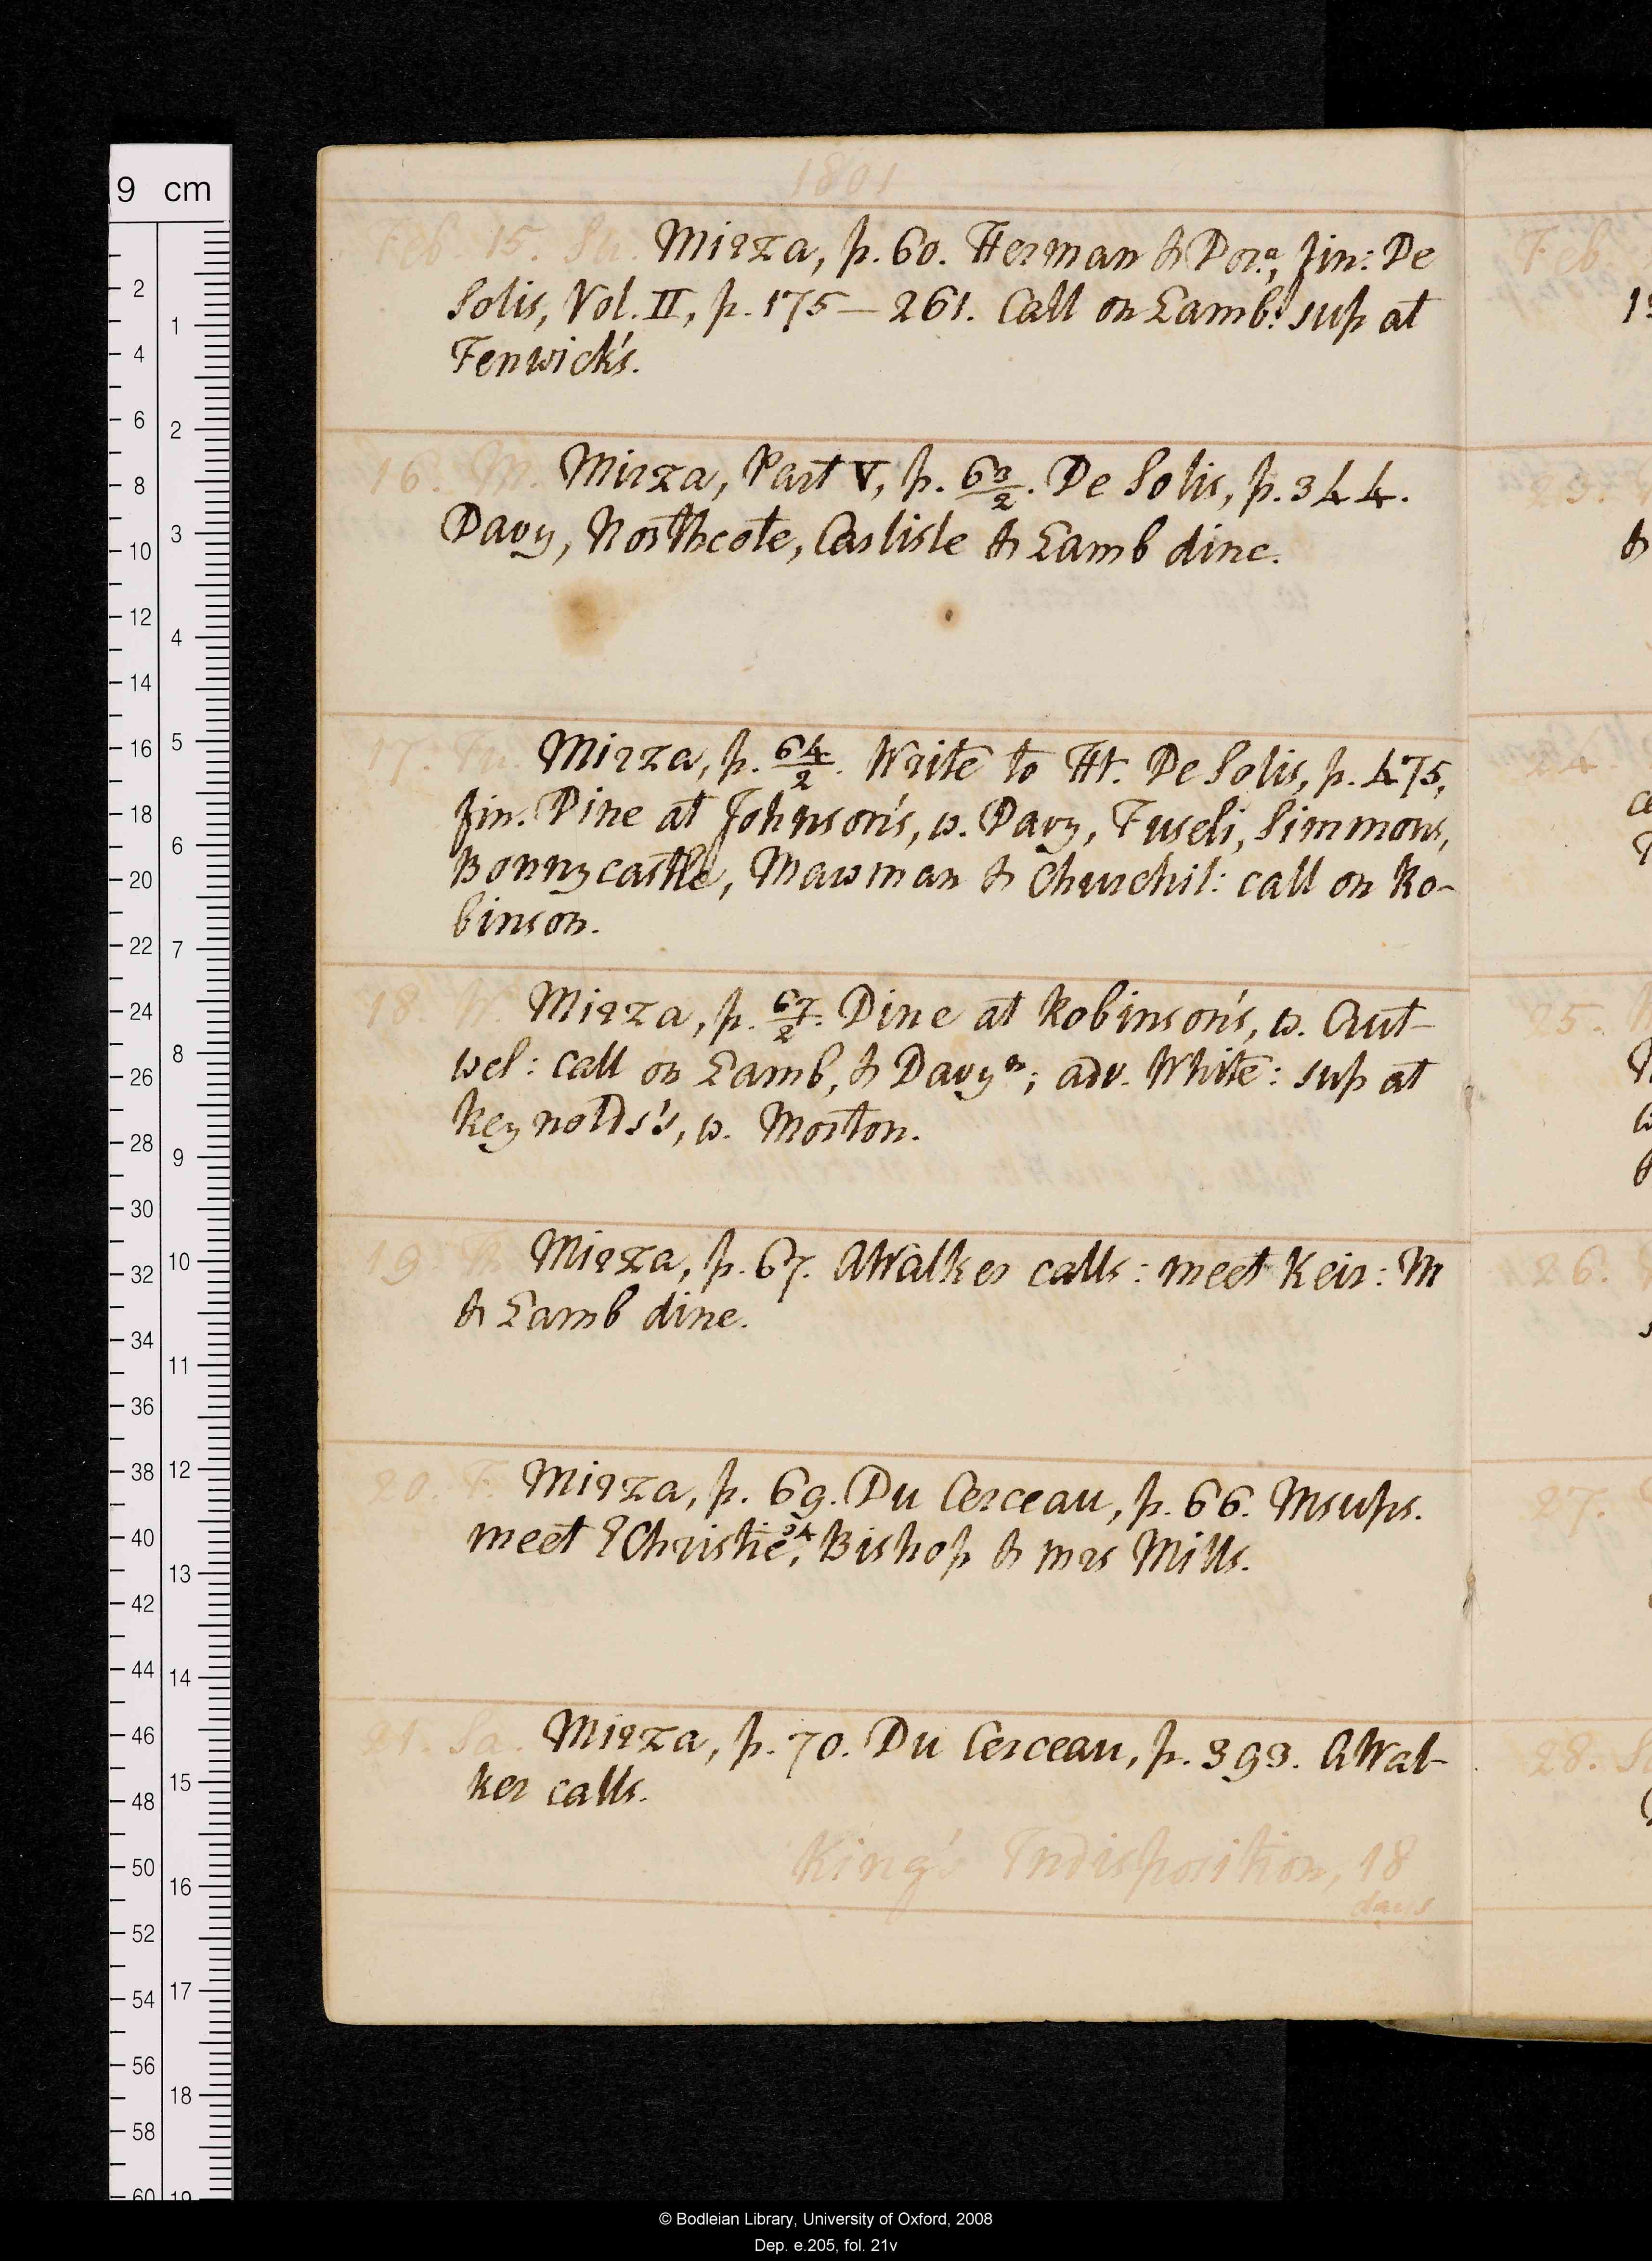 1801
Feb. 15. Su. Mirza, p. 60. Herman & Dora, fin: De
Solis, Vol. II, p. 175–261. Call on Lamb: sup at
Fenwick's.
16. M. Mirza, Part V, p. 63/2. De Solis, p. 344.
Davy, Northcote, Carlisle & Lamb dine.
17. Tu. Mirza, p. 64/2. Write to Ht. De Solis, p. 475,
fin. Dine at Johnson's, w. Davy, Fuseli, Simmons,
Bonnycastle, Mawman & Churchil: call on Ro-
binson.
18. W. Mirza, p. 67/2. Dine at Robinson's, w. Aut-
wel: call on Lamb, & Davy n; adv. White: sup at
Reynolds's, w. Morton.
19. Th. Mirza, p. 67. AWalker calls: meet Keir: M
& Lamb dine.
20. F. Mirza, p. 69. Du Cerceau, p. 66. M sups.
meet Christie, Bishop & mrs Mills.
21. Sa. Mirza, p. 70. Du Cerceau, p. 393. AWal-
ker calls.
King's Indisposition, 18
days
Feb.
23.
&
24.
25.
26.
27.
28.
9 cm
2
4
6
8
10
12
14
16
18
20
22
24
26
28
30
32
34
36
38
40
42
44
46
48
50
52
54
56
58
60
1
2
3
4
5
6
7
8
9
10
11
12
13
14
15
16
17
18
19
© Bodleian Library, University of Oxford, 2008
Dep. e.205, fol. 21v